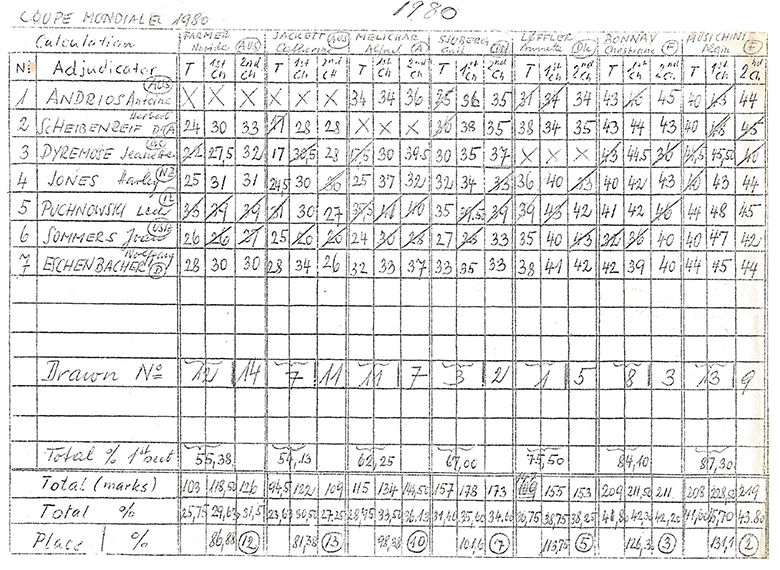 COUPE MONDIALE 1980
1980
Calculation FARMER (AUS) JACKETT Catherine (AUS) MELICHAR Alfred (A) Gail LÖFFLER Annette (DK) DONNAY Christiane (F) MUSICHINI Alain (F)
No Adjudicator T 1st Ch 2nd Ch T 1st Ch 2nd CH T 1st Ch 2nd Ch T 1st Ch 2nd Ch T 1st Ch 2nd Ch T 1st Ch 2nd Ch T 1st Ch 2nd Ch
1 ANDRIOS Antoine (AUS) X X X X X X 34 34 36 35 36 35 31 34 34 43 46 45 40 43 44
2 SCHEIBENREIF Herbert (A) 24 30 33 17 28 28 X X X 36 38 35 38 34 35 43 44 43 40 48 45
3 DYREMOSE Jeanette 22 27,5 32 17 30,5 28 17,5 30 39,5 30 35 37 X X X 43 44,5 36 45,50 40
4 JONES Harley (NZ) 25 31 31 24,5 30 30 25 37 32 32 34 33 36 40 33 40 42 43 40 43 44
5 PUCHNOWSKI Lech 33 39 39 31 30 27 40 35 39 39 43 42 41 42 46 44 48 45
6 SOMMERS Joan (USA) 26 26 27 25 20 20 24 30 28 27 33 35 40 43 36 40 40 47 42
7 ESCHENBACHER Wolfgang (D) 28 30 30 28 34 26 32 33 37 33 35 33 38 41 42 42 39 40 44 45 44
Drawn No 12 14 7 11 11 7 3 2 1 5 8 3 13 9
Total % 1st sect 55,38 54,13 62,25 67,00 75,50 84,10 87,30
Total (marks) 103 118,50 126 94,5 122 109 115 134 144,50 157 178 173 155 153 209 211,50 211 208 228,50 219
Total % 25,75 29,63 31,5 23,63 30,50 27.25 28,75 33,50 36.13 31,40 35,60 34.60 36,75 38,75 38,25 41,80 42,30 42,20 41,60 45,70 43.80
Place / % 86,88 (12) 81,38 (13) 98,38 (10) 101,6 (7) 113,75 (5) 126,30 (3) 131,1 (2)